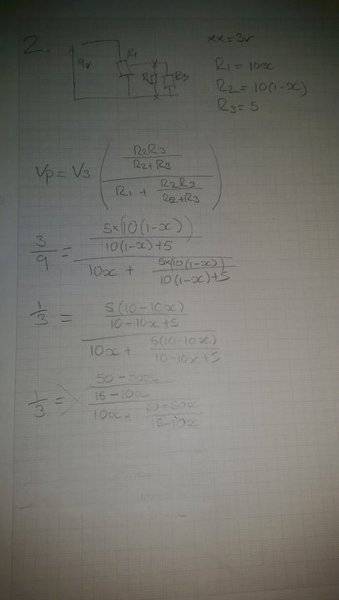 2.
9v R1 R2 R3
= 3v
R1 = 10x
R2 = 10(1-x)
R3 = 5
Vp = Vs ( (R2R3 / R2+R3) / (R1 + R2R3 / R2+R3) )
3/9 = (5×(10(1-x)) / 10(1-x)+5) / (10x + 5×(10(1-x)) / 10(1-x)+5)
1/3 = (5(10-10x) / 10-10x+5) / (10x + 5(10-10x) / 10-10x+5)
1/3 = (50 - / 15-10x) / (10x + 50-50x / 15-10x)